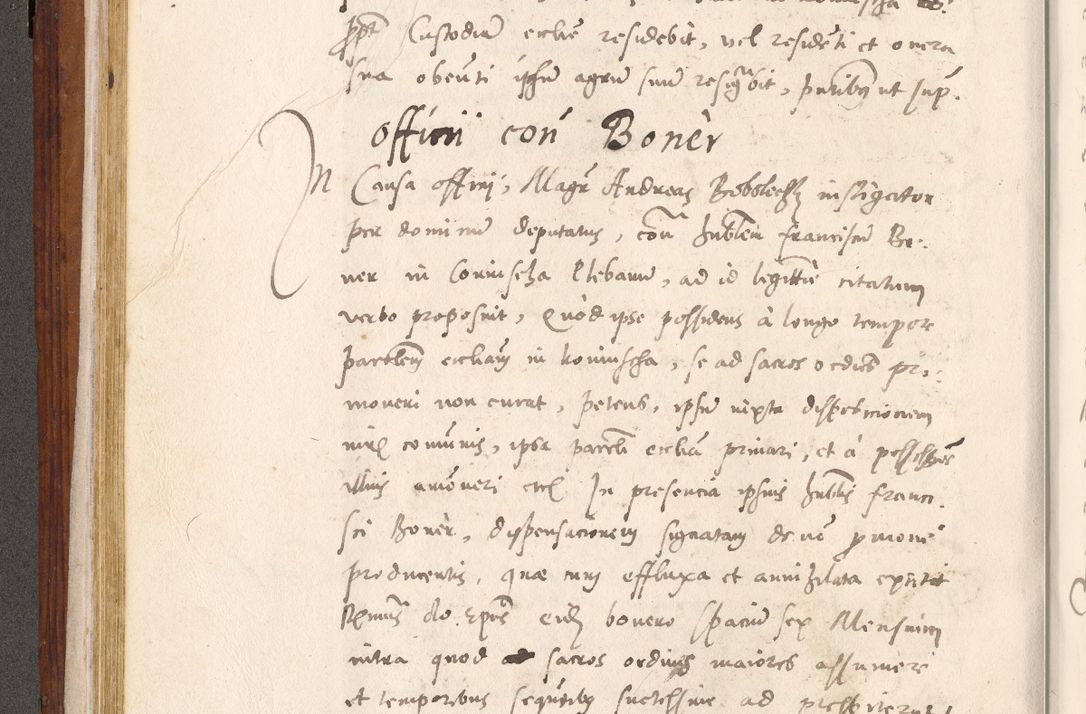 ꝓpt Custodiu ecclie residebit, vel residēti et onera
sua obeūti ipsū agrū suū resignabit, pntibꝫ ut supˢ.
Officii con Boner
In Causa officij, Magr Andreas instigator
per dominū deputatus, con hnblem franciscū Bo-
ner in Coniuscha Plebanū, ad id legittime citatum
verbo proposuit, Quòd ipse possidens à longo tempore
parochlem eccliam in Koniuscha, se ad sacros ordines pro-
moveri non curat, petens, ipsū iuxta dispositionem
iuris comunis, ipsa parochli ecclia privari, et à possessione
illius amoveri etc In presencia ipsius hnblis franci-
sci Boner, dispensacionem signatam de nō ꝓmone
producentis, quae cum effluxa et annihilata extitit
Rmus do: Epus eidē bonero spaciū sex Mensium
intra quod sacros ordines maiores assumere
et temporibus sequētibꝫ ad